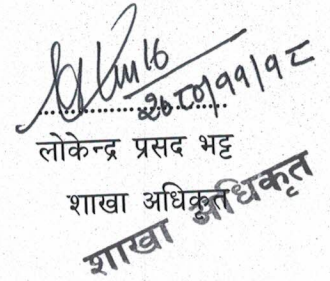 २०८०/११/१८
लोकेन्द्र प्रसद भट्ट
शाखा अधिकृत
शाखा अधिकृत